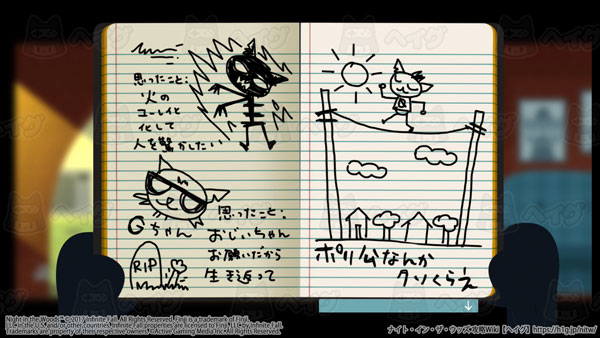 思ったこと:
火の
ユーレイと
化して
人を驚かしたい
Gちゃん
思ったこと:
おじいちゃん
お願いだから
生き返って
RIP
ポリ公なんか
クソくらえ
Night in the Woods™ © 2017 Infinite Fall. All Rights Reserved. Finji is a trademark of Finji,
LLC in the U.S. and/or other countries. Infinite Fall properties are licensed to Finji, LLC by Infinite Fall.
Trademarks are property of their respective owners. ©Active Gaming Media Inc. All Rights Reserved.
ナイト・イン・ザ・ウッズ攻略Wiki【ヘイグ】https://h1g.jp/nitw/